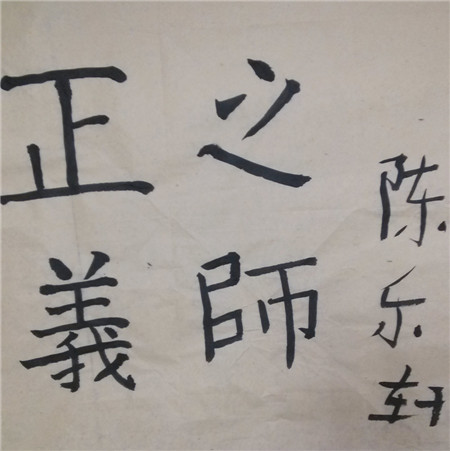 正義
之師
陈乐轩